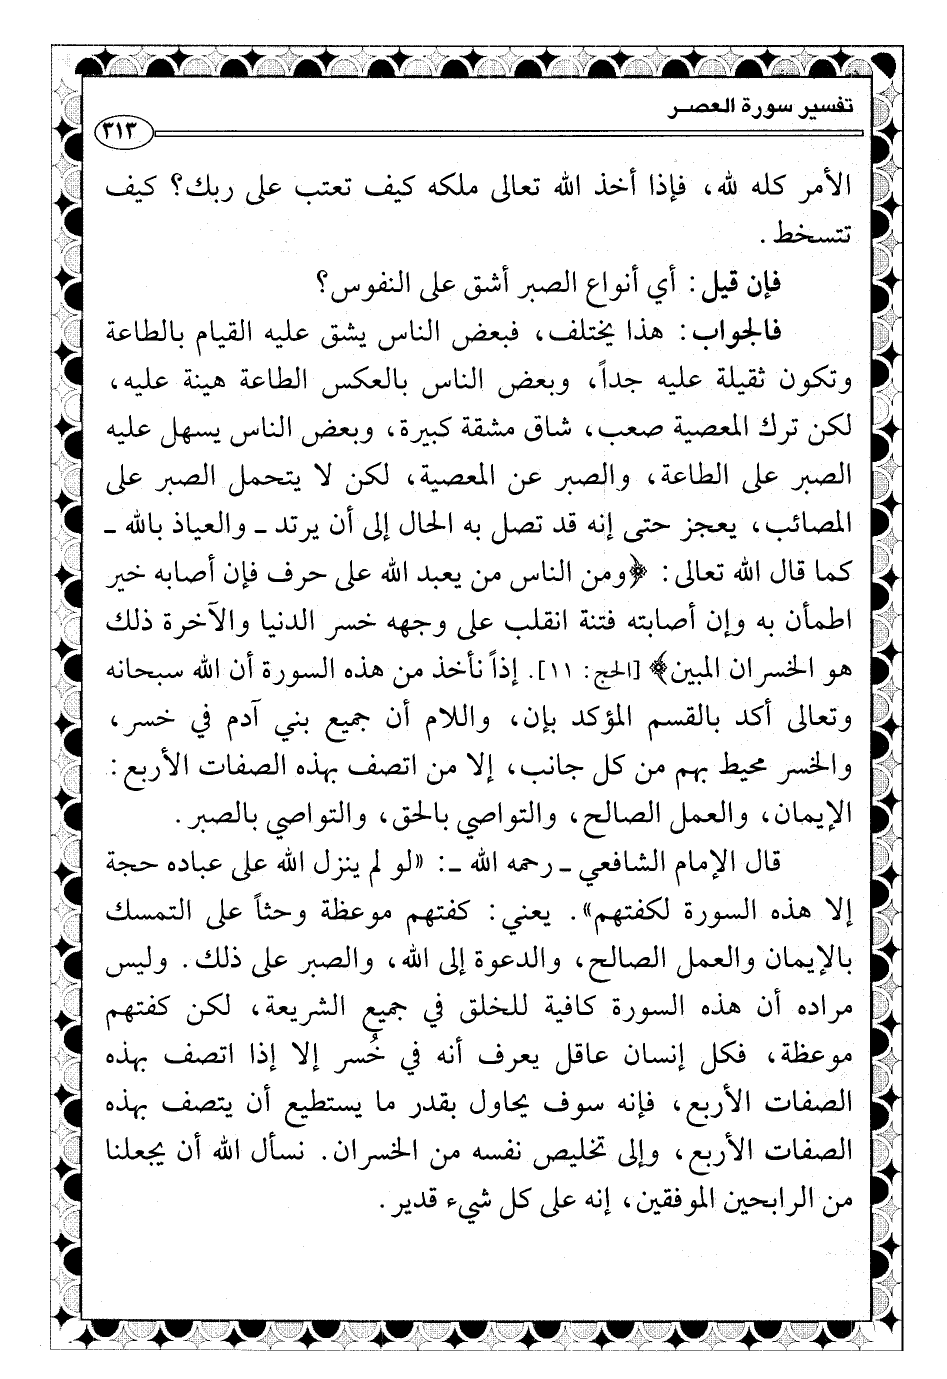 تفسير سورة العصر
٣١٣
الأمر كله لله، فإذا أخذ الله تعالى ملكه كيف تعتب على ربك؟ كيف
تتسخط.
فإن قيل: أي أنواع الصبر أشق على النفوس؟
فالجواب: هذا يختلف، فبعض الناس يشق عليه القيام بالطاعة
وتكون ثقيلة عليه جداً، وبعض الناس بالعكس الطاعة هينة عليه،
لكن ترك المعصية صعب، شاق مشقة كبيرة، وبعض الناس يسهل عليه
الصبر على الطاعة، والصبر عن المعصية، لكن لا يتحمل الصبر على
المصائب، يعجز حتى إنه قد تصل به الحال إلى أن يرتد ـ والعياذ بالله ـ
كما قال الله تعالى: ﴿ومن الناس من يعبد الله على حرف فإن أصابه خير
اطمأن به وإن أصابته فتنة انقلب على وجهه خسر الدنيا والآخرة ذلك
هو الخسران المبين﴾ [الحج: ١١]. إذاً نأخذ من هذه السورة أن الله سبحانه
وتعالى أكد بالقسم المؤكد بإن، واللام أن جميع بني آدم في خسر،
والخسر محيط بهم من كل جانب، إلا من اتصف بهذه الصفات الأربع:
الإيمان، والعمل الصالح، والتواصي بالحق، والتواصي بالصبر.
قال الإمام الشافعي ـ رحمه الله ـ: «لو لم ينزل الله على عباده حجة
إلا هذه السورة لكفتهم». يعني: كفتهم موعظة وحثاً على التمسك
بالإيمان والعمل الصالح، والدعوة إلى الله، والصبر على ذلك. وليس
مراده أن هذه السورة كافية للخلق في جميع الشريعة، لكن كفتهم
موعظة، فكل إنسان عاقل يعرف أنه في خُسر إلا إذا اتصف بهذه
الصفات الأربع، فإنه سوف يحاول بقدر ما يستطيع أن يتصف بهذه
الصفات الأربع، وإلى تخليص نفسه من الخسران. نسأل الله أن يجعلنا
من الرابحين الموفقين، إنه على كل شيء قدير.